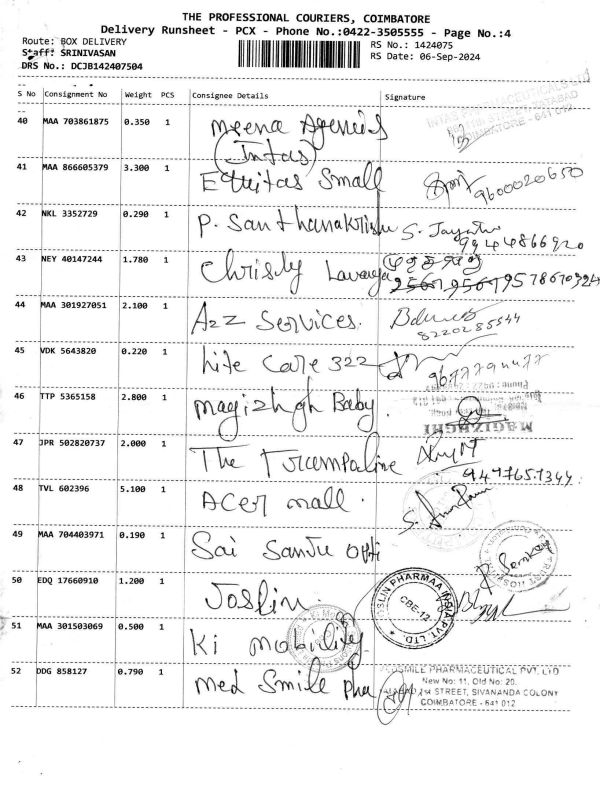 THE PROFESSIONAL COURIERS, COIMBATORE
Delivery Runsheet - PCX - Phone No.:0422-3505555 - Page No.:4
Route: BOX DELIVERY
RS No.: 1424075
Staff: SRINIVASAN
RS Date: 06-Sep-2024
DRS No.: DCJB142407504
S No Consignment No Weight PCS Consignee Details Signature
40 MAA 703861875 0.350 1 Meena Agencies
(Intas)
INTAS PHARMACEUTICALS Ltd
COIMBATORE - 641 012
41 MAA 866605379 3.300 1 Equitas Small 9600020650
42 NKL 3352729 0.290 1 P. Santhanakrishn S. Jayanthi
9944866920
43 NEY 40147244 1.780 1 Chrisly Lavanya
9578670324
44 MAA 301927051 2.100 1 A2Z Services.
8220285544
45 VDK 5643820 0.220 1 Life Care 322
46 TTP 5365158 2.800 1 Magizhgh Baby.
MAGIZHCHI
47 JPR 502820737 2.000 1 The Trampoline
48 TVL 602396 5.100 1 Acer mall.
49 MAA 704403971 0.190 1 Sai Sanju Opti
50 EDQ 17660910 1.200 1 Joslin.
JOSLIN PHARMAA INDIA PVT. LTD
CBE-12
51 MAA 301503069 0.500 1 Ki Mobility
52 DDG 858127 0.790 1 Med Smile Pha
MEDSMILE PHARMACEUTICAL PVT. LTD
New No: 11, Old No: 20.
1st STREET, SIVANANDA COLONY
COIMBATORE - 641 012